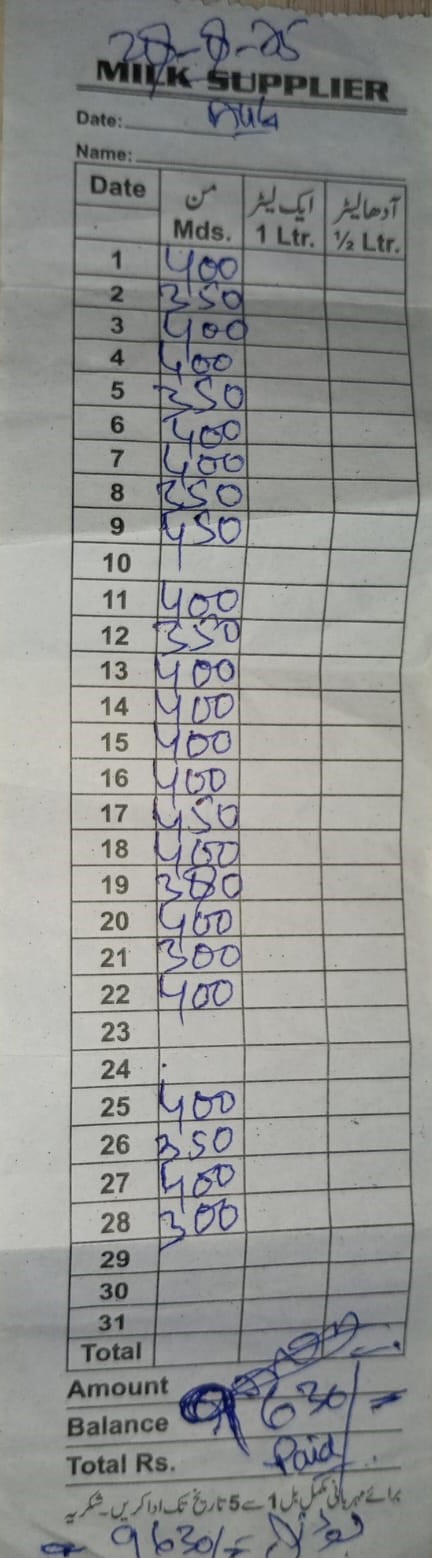 MILK SUPPLIER
Date:
Name:
Date من ایک لیٹر آدھا لیٹر
Mds. 1 Ltr. ½ Ltr.
1 400
2 350
3 400
4 400
5 350
6 400
7 400
8 350
9 450
10
11 400
12 350
13 400
14 400
15 400
16 400
17 450
18 400
19 300
20 400
21 300
22 400
23
24
25 400
26 350
27 400
28 300
29
30
31
Total
Amount
Balance 9630/-
Total Rs. Paid
برائے مہربانی مکمل بل 1 سے 5 تاریخ تک ادا کریں۔ شکریہ
9630/=